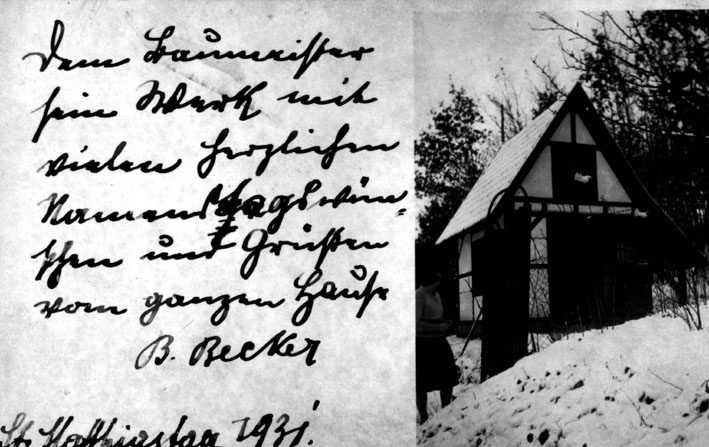 Dem Baumeister
sein Werk mit
vielen herzlichen
Namenstagswün-
schen und Grüßen
vom ganzen Hause
B. Becker
St. Matthiastag 1931.